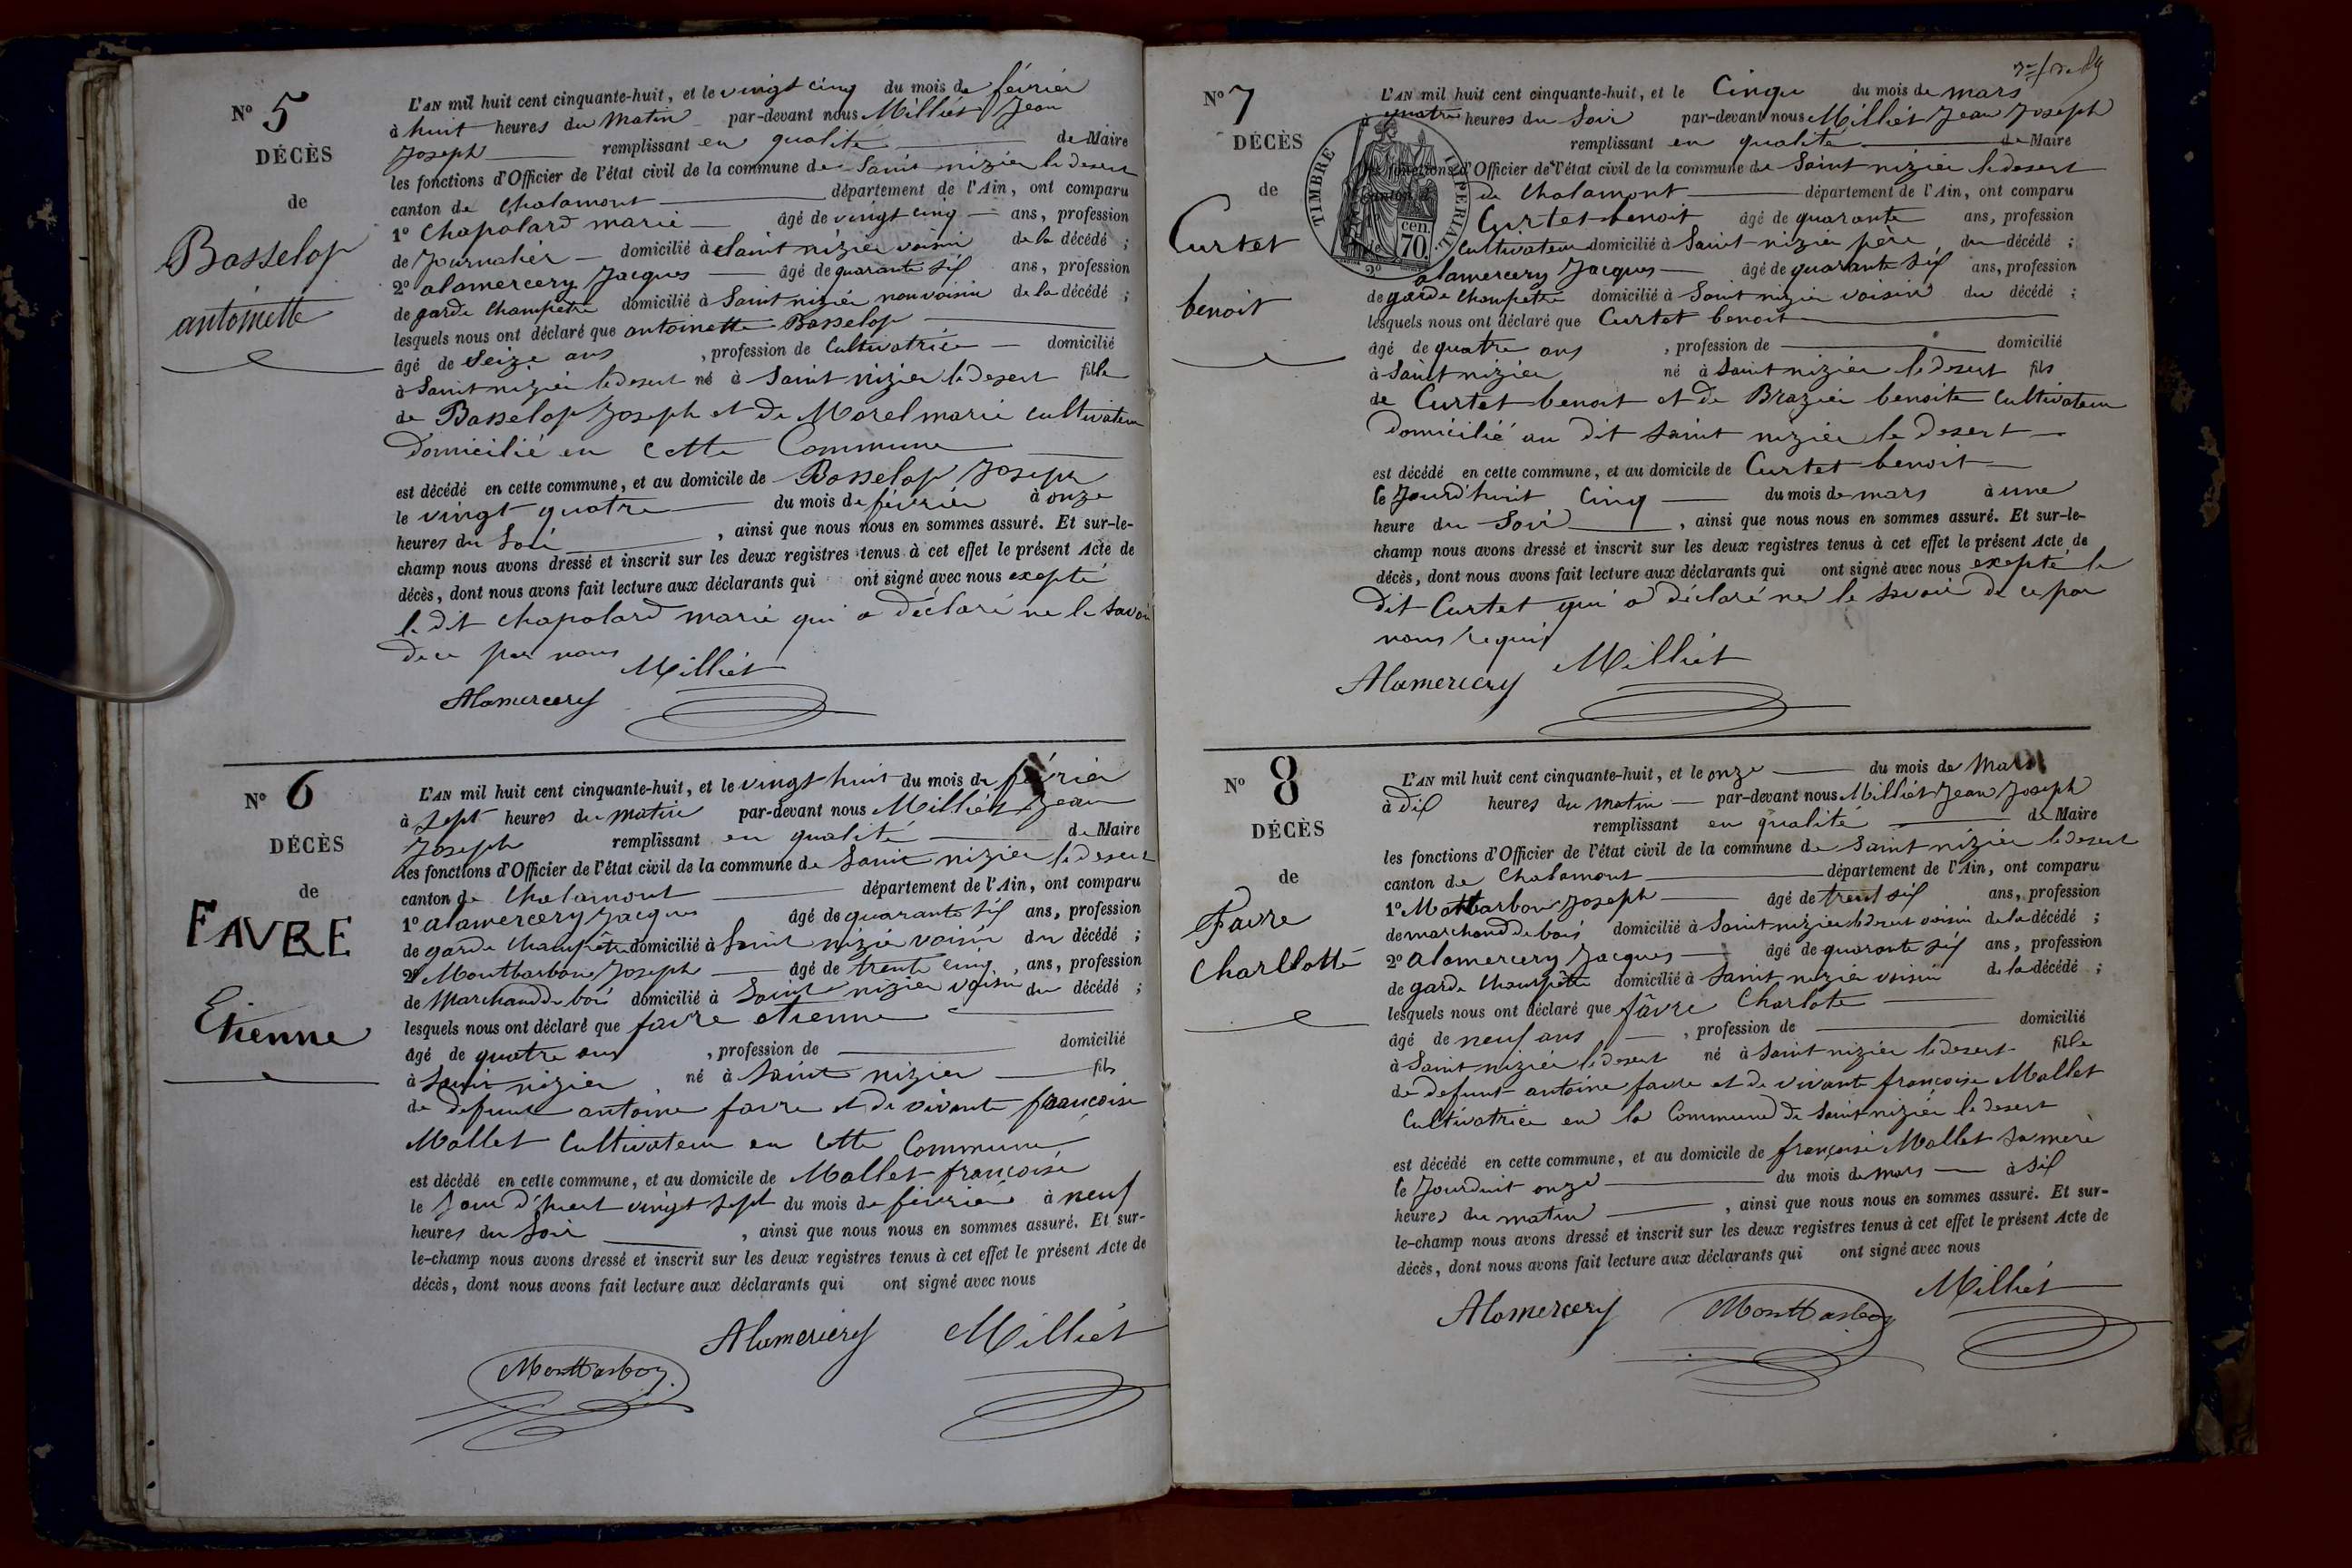 N° 5
DÉCÈS
de
Basselop
antoinette
L'AN mil huit cent cinquante-huit, et le vingt cinq du mois de février
à huit heures du matin par-devant nous Milliet Jean
Joseph remplissant en qualité de Maire
les fonctions d'Officier de l'état civil de la commune de Saint nizier le desert
canton de Chalamont département de l'Ain, ont comparu
1° Chapolard marie âgé de vingt cinq ans, profession
de Journalier domicilié à Saint nizier voisin de la décédé ;
2° alamercery Jacques âgé de quarante six ans, profession
de garde champetre domicilié à Saint nizier non voisin de la décédé ;
lesquels nous ont déclaré que antoinette Basselop
âgé de Seize ans , profession de Cultivatrice domicilié
à Saint nizier le desert né à Saint nizier le desert fille
de Basselop Joseph et de Morel marie cultivateur
Domicilié en Cette Commune
est décédé en cette commune, et au domicile de Basselop Joseph
le vingt quatre du mois de février à onze
heures du Soir , ainsi que nous nous en sommes assuré. Et sur-le-
champ nous avons dressé et inscrit sur les deux registres tenus à cet effet le présent Acte de
décès, dont nous avons fait lecture aux déclarants qui ont signé avec nous exepté
le dit chapolard marie qui a déclaré ne le savoir
de ce par nous
Milliet
Alamercery
N° 6
DÉCÈS
de
FAVRE
Etienne
L'AN mil huit cent cinquante-huit, et le vingt huit du mois de février
à sept heures du matin par-devant nous Milliet Jean
Joseph remplissant en qualité de Maire
les fonctions d'Officier de l'état civil de la commune de Saint nizier le desert
canton de Chalamont département de l'Ain, ont comparu
1° alamercery Jacques âgé de quarante six ans, profession
de garde champêtre domicilié à Saint nizier voisin du décédé ;
2° Montbarbon Joseph âgé de trente cinq ans, profession
de Marchand de bois domicilié à Saint nizier voisin du décédé ;
lesquels nous ont déclaré que favre etienne
âgé de quatre ans , profession de domicilié
à Saint nizier né à Saint nizier fils
de defunt antoine favre et de vivante francoise
Mallet Cultivateur en Cette Commune
est décédé en cette commune, et au domicile de Mallet francoise
le Jour d'huit vingt sept du mois de février à neuf
heures du Soir , ainsi que nous nous en sommes assuré. Et sur-
le-champ nous avons dressé et inscrit sur les deux registres tenus à cet effet le présent Acte de
décès, dont nous avons fait lecture aux déclarants qui ont signé avec nous
Alamercery Milliet
Montbarbon
N° 7
DÉCÈS
de
Curtet
benoit
TIMBRE IMPERIAL
cen.
70.
L'AN mil huit cent cinquante-huit, et le Cinque du mois de mars
à quatre heures du Soir par-devant nous Milliet Jean Joseph
remplissant en qualité de Maire
les fonctions d'Officier de l'état civil de la commune de Saint nizier le desert
canton de Chalamont département de l'Ain, ont comparu
Curtet benoit âgé de quarante ans, profession
de Cultivateur domicilié à Saint nizier père du décédé ;
2° alamercery Jacques âgé de quarante six ans, profession
de garde champetre domicilié à Saint nizier voisin du décédé ;
lesquels nous ont déclaré que Curtet benoit
âgé de quatre ans , profession de domicilié
à Saint nizier né à Saint nizier le desert fils
de Curtet benoit et de Brazier benoite Cultivateur
Domicilié au dit saint nizier le desert
est décédé en cette commune, et au domicile de Curtet benoit
le Jourd'huit Cinq du mois de mars à une
heure du Soir , ainsi que nous nous en sommes assuré. Et sur-le-
champ nous avons dressé et inscrit sur les deux registres tenus à cet effet le présent Acte de
décès, dont nous avons fait lecture aux déclarants qui ont signé avec nous exepté le
dit Curtet qui a déclaré ne le savoir de ce par
nous requis
Milliet
Alamercery
N° 8
DÉCÈS
de
Favre
Charllotte
L'AN mil huit cent cinquante-huit, et le onze du mois de Mars
à dix heures du matin par-devant nous Milliet Jean Joseph
remplissant en qualité de Maire
les fonctions d'Officier de l'état civil de la commune de Saint nizier le desert
canton de Chalamont département de l'Ain, ont comparu
1° Montbarbon Joseph âgé de trent six ans, profession
de marchand de bois domicilié à Saint nizier le desert voisin de la décédé ;
2° alamercery Jacques âgé de quarante six ans, profession
de garde champêtre domicilié à Saint nizier voisin de la décédé ;
lesquels nous ont déclaré que fâvre Charlote
âgé de neuf ans , profession de domicilié
à Saint nizier le desert né à Saint nizier le desert fille
de defunt antoine favre et de vivante francoise Mallet
Cultivatrice en la Commune de Saint nizier le desert
est décédé en cette commune, et au domicile de françoise Mallet sa mere
le Jourduit onze du mois de mars à Six
heures du matin , ainsi que nous nous en sommes assuré. Et sur-
le-champ nous avons dressé et inscrit sur les deux registres tenus à cet effet le présent Acte de
décès, dont nous avons fait lecture aux déclarants qui ont signé avec nous
Milliet
Alamercery Montbarbon